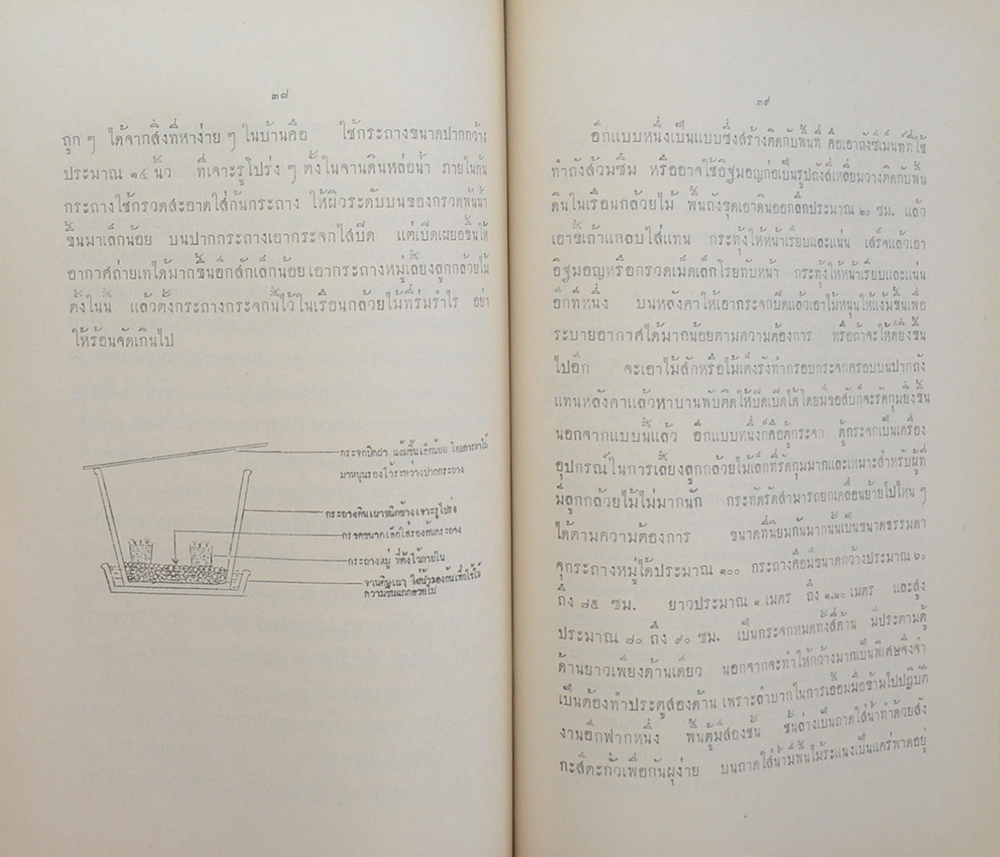 ๓๘
ถูก ๆ ได้จากสิ่งที่หาง่าย ๆ ในบ้านคือ ใช้กระถางขนาดปากกว้าง
ประมาณ ๑๕ นิ้ว ที่เจาะรูโปร่ง ๆ ตั้งในจานดินหล่อน้ำ ภายในก้น
กระถางใช้กรวดสะอาดใส่ก้นกระถาง ให้ผิวระดับบนของกรวดพ้นน้ำ
ขึ้นมาเล็กน้อย บนปากกระถางเอากระจกใสปิด แต่เปิดเผยอขึ้นให้
อากาศถ่ายเทได้มากขึ้นอีกสักเล็กน้อย เอากระถางหมู่เลี้ยงลูกกล้วยไม้
ตั้งในนี้ แล้วตั้งกระถางกระจกนี้ไว้ในเรือนกล้วยไม้ที่ร่มรำไร อย่า
ให้ร้อนจัดเกินไป
กระจกปิดฝา แง้มขึ้นเล็กน้อย โดยการหาไม้
มาหนุนรองไว้ระหว่างปากกระถาง
กระถางดินเผาชนิดข้างเจาะรูโปร่ง
กรวดขนาดเล็กใส่รองก้นกระถาง
กระถางหมู่ ที่ตั้งไว้ภายใน
จานดินเผา ใส่น้ำรองก้นเพื่อไว้ให้
ความชื้นแก่กล้วยไม้
๓๙
อีกแบบหนึ่งเป็นแบบซึ่งสร้างติดกับพื้นที่ คือเอาถังซีเม็นต์ที่ใช้
ทำถังส้วมซึม หรืออาจใช้อิฐมอญก่อเป็นรูปถังสี่เหลี่ยมวางติดกับพื้น
ดินในเรือนกล้วยไม้ พื้นถังขุดเอาดินออกลึกประมาณ ๒๐ ซม. แล้ว
เอาขี้เถ้าแกลบใส่แทน กระทุ้งให้หน้าเรียบและแน่น เสร็จแล้วเอา
อิฐมอญหรือกรวดเม็ดเล็กโรยทับหน้า กระทุ้งให้หน้าเรียบและแน่น
อีกทีหนึ่ง บนหลังคาให้เอากระจกปิดแล้วเอาไม้หนุนให้แง้มขึ้นเพื่อ
ระบายอากาศได้มากน้อยตามความต้องการ หรือถ้าจะให้ดียิ่งขึ้น
ไปอีก จะเอาไม้สักหรือไม้เต็งรังทำกรอบกระจกครอบบนปากถัง
แทนหลังคาแล้วหาบานพับติดให้ปิดเปิดได้โดยมีขอสับก็จะรัดกุมยิ่งขึ้น
นอกจากแบบนี้แล้ว อีกแบบหนึ่งก็คือตู้กระจก ตู้กระจกเป็นเครื่อง
อุปกรณ์ในการเลี้ยงลูกกล้วยไม้เล็กที่รัดกุมมากและเหมาะสำหรับผู้ที่
มีลูกกล้วยไม้ไม่มากนัก กระทัดรัดสามารถยกเคลื่อนย้ายไปไหน ๆ
ได้ตามความต้องการ ขนาดที่นิยมกันมากนั้นเป็นขนาดธรรมดา
จุกระถางหมู่ได้ประมาณ ๑๐๐ กระถางคือมีขนาดกว้างประมาณ ๖๐
ถึง ๗๕ ซม. ยาวประมาณ ๑ เมตร ถึง ๑.๒๐ เมตร และสูง
ประมาณ ๗๐ ถึง ๙๐ ซม. เป็นกระจกหมดทั้งสี่ด้าน มีประตามตู้
ด้านยาวเพียงด้านเดียว นอกจากจะทำให้กว้างมากเป็นพิเศษจึงจำ
เป็นต้องทำประตูสองด้าน เพราะลำบากในการเอื้อมมือข้ามไปปฏิบัติ
งานอีกฟากหนึ่ง พื้นตู้มีสองชั้น ชั้นล่างเป็นถาดใส่น้ำทำด้วยสัง
กะสีตะกั่วเพื่อกันผุง่าย บนถาดใส่น้ำมีพื้นไม้ระแนงเป็นแคร่พาดอยู่